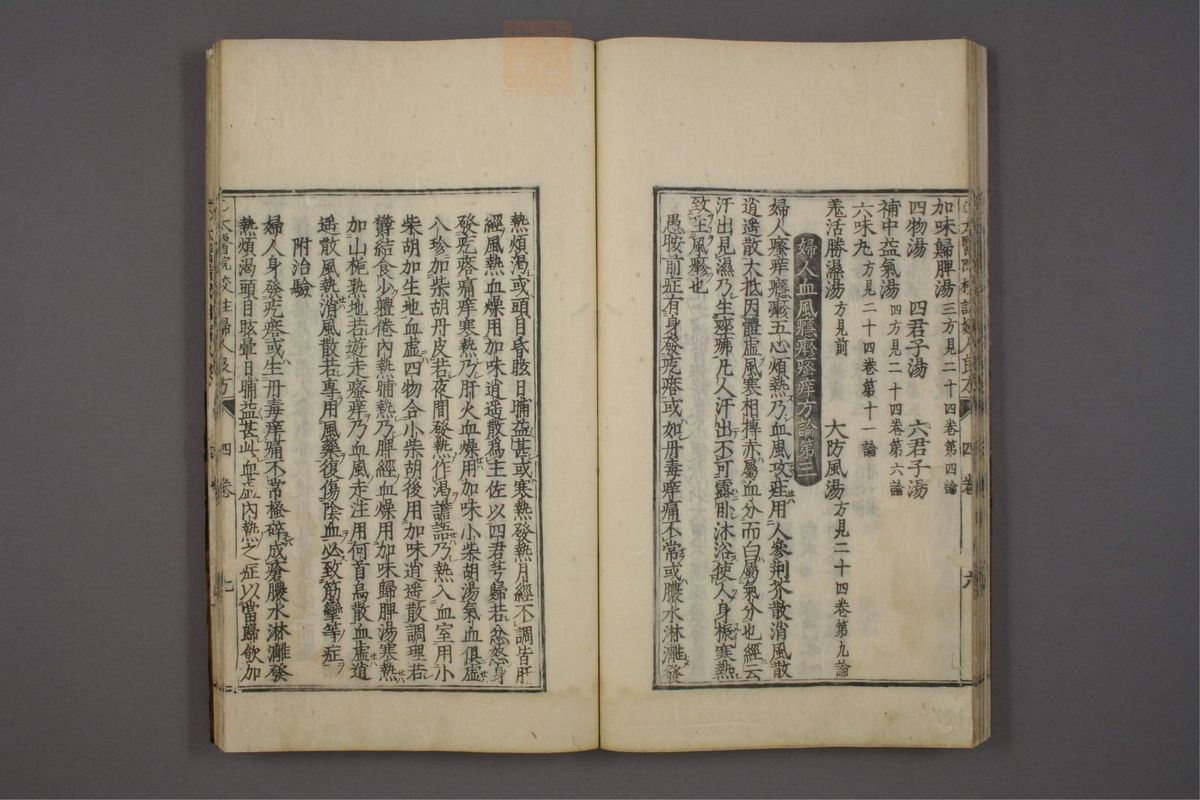 加味歸脾湯三方見二十四卷第四論
四物湯　四君子湯　六君子湯
補中益氣湯四方見二十四卷第六論
六味丸方見二十四卷第十一論
羗活勝濕湯方見前　大防風湯方見二十四卷第九論
婦人血風癮疹瘙痒方論第三
婦人瘙痒癮疹五心煩熱乃血風攻疰用人參荆芥散消風散
逍遥散大抵因體虛風寒相搏赤屬血分而白屬氣分也經云
汗出見濕乃生痤疿凡人汗出不可露卧沐浴使人身振寒熱
致生風疹也
愚按前症有身發疙瘩或如丹毒痒痛不常或膿水淋漓發
熱煩渴或頭目昏眩日晡益甚或寒熱發熱月經不調皆肝
經風熱血燥用加味逍遥散爲主佐以四君芎歸若忿怒身
發疙瘩痛痒寒熱乃肝火血燥用加味小柴胡湯氣血俱虛
八珍加柴胡丹皮若夜間發熱作渴譫語乃熱入血室用小
柴胡加生地血虛四物合小柴胡後用加味逍遥散調理若
欝結食少體倦內熱晡熱乃脾經血燥用加味歸脾湯寒熱
加山梔熟地若遊走瘙痒乃血風走注用何首烏散血虛逍
遥散風熱消風散若專用風藥復傷陰血必致筋攣等症
附治驗
婦人身發疙瘩或生丹毒痒痛不常搔碎成瘡膿水淋漓發
熱煩渴頭目眩暈日晡益甚此血虛內熱之症以當歸飲加
太醫院校註婦人良方　四卷　六
太醫院校註婦人良方　四卷　七